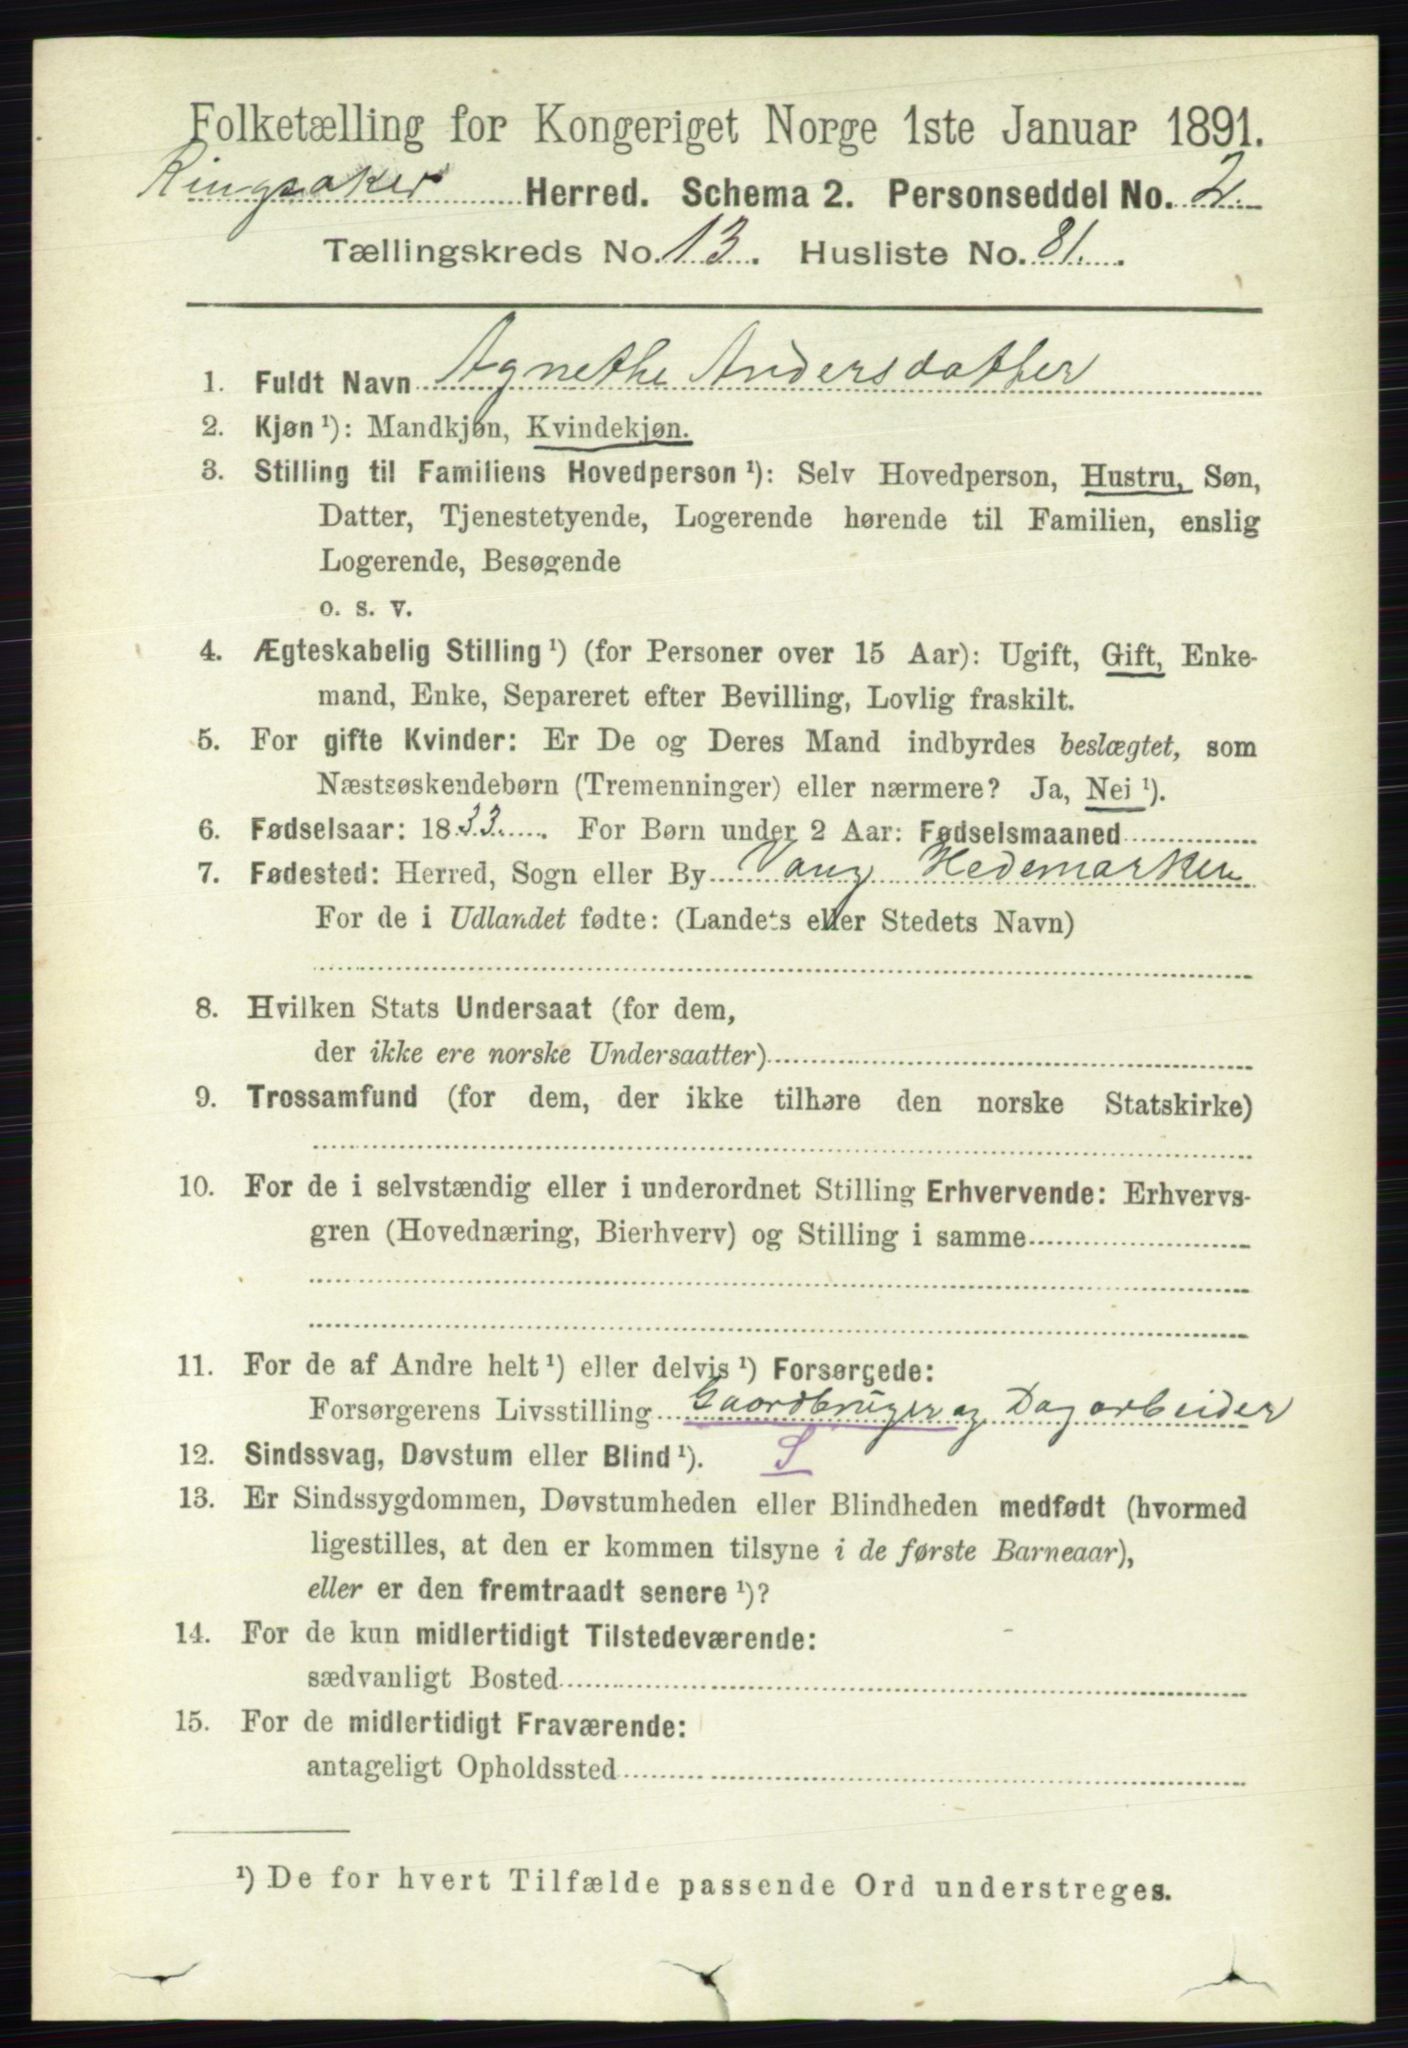 Folketælling for Kongeriget Norge 1ste Januar 1891.
Ringsaker Herred. Schema 2. Personseddel No. 2.
Tællingskreds No. 13. Husliste No. 81.
1. Fuldt Navn Agnethe Andersdatter
2. Kjøn ¹): Mandkjøn, Kvindekjøn.
3. Stilling til Familiens Hovedperson ¹): Selv Hovedperson, Hustru, Søn,
Datter, Tjenestetyende, Logerende hørende til Familien, enslig
Logerende, Besøgende
o. s. v.
4. Ægteskabelig Stilling ¹) (for Personer over 15 Aar): Ugift, Gift, Enke-
mand, Enke, Separeret efter Bevilling, Lovlig fraskilt.
5. For gifte Kvinder: Er De og Deres Mand indbyrdes beslægtet, som
Næstsøskendebørn (Tremenninger) eller nærmere? Ja, Nei ¹).
6. Fødselsaar: 1833. For Børn under 2 Aar: Fødselsmaaned
7. Fødested: Herred, Sogn eller By Vang Hedemarken
For de i Udlandet fødte: (Landets eller Stedets Navn)
8. Hvilken Stats Undersaat (for dem,
der ikke ere norske Undersaatter)
9. Trossamfund (for dem, der ikke tilhøre den norske Statskirke)
10. For de i selvstændig eller i underordnet Stilling Erhvervende: Erhvervs-
gren (Hovednæring, Bierhverv) og Stilling i samme
11. For de af Andre helt ¹) eller delvis ¹) Forsørgede:
Forsørgerens Livsstilling Gaardbruger og Dagarbeider
12. Sindssvag, Døvstum eller Blind ¹). S
13. Er Sindssygdommen, Døvstumheden eller Blindheden medfødt (hvormed
ligestilles, at den er kommen tilsyne i de første Barneaar),
eller er den fremtraadt senere ¹)?
14. For de kun midlertidigt Tilstedeværende:
sædvanligt Bosted
15. For de midlertidigt Fraværende:
antageligt Opholdssted
¹) De for hvert Tilfælde passende Ord understreges.